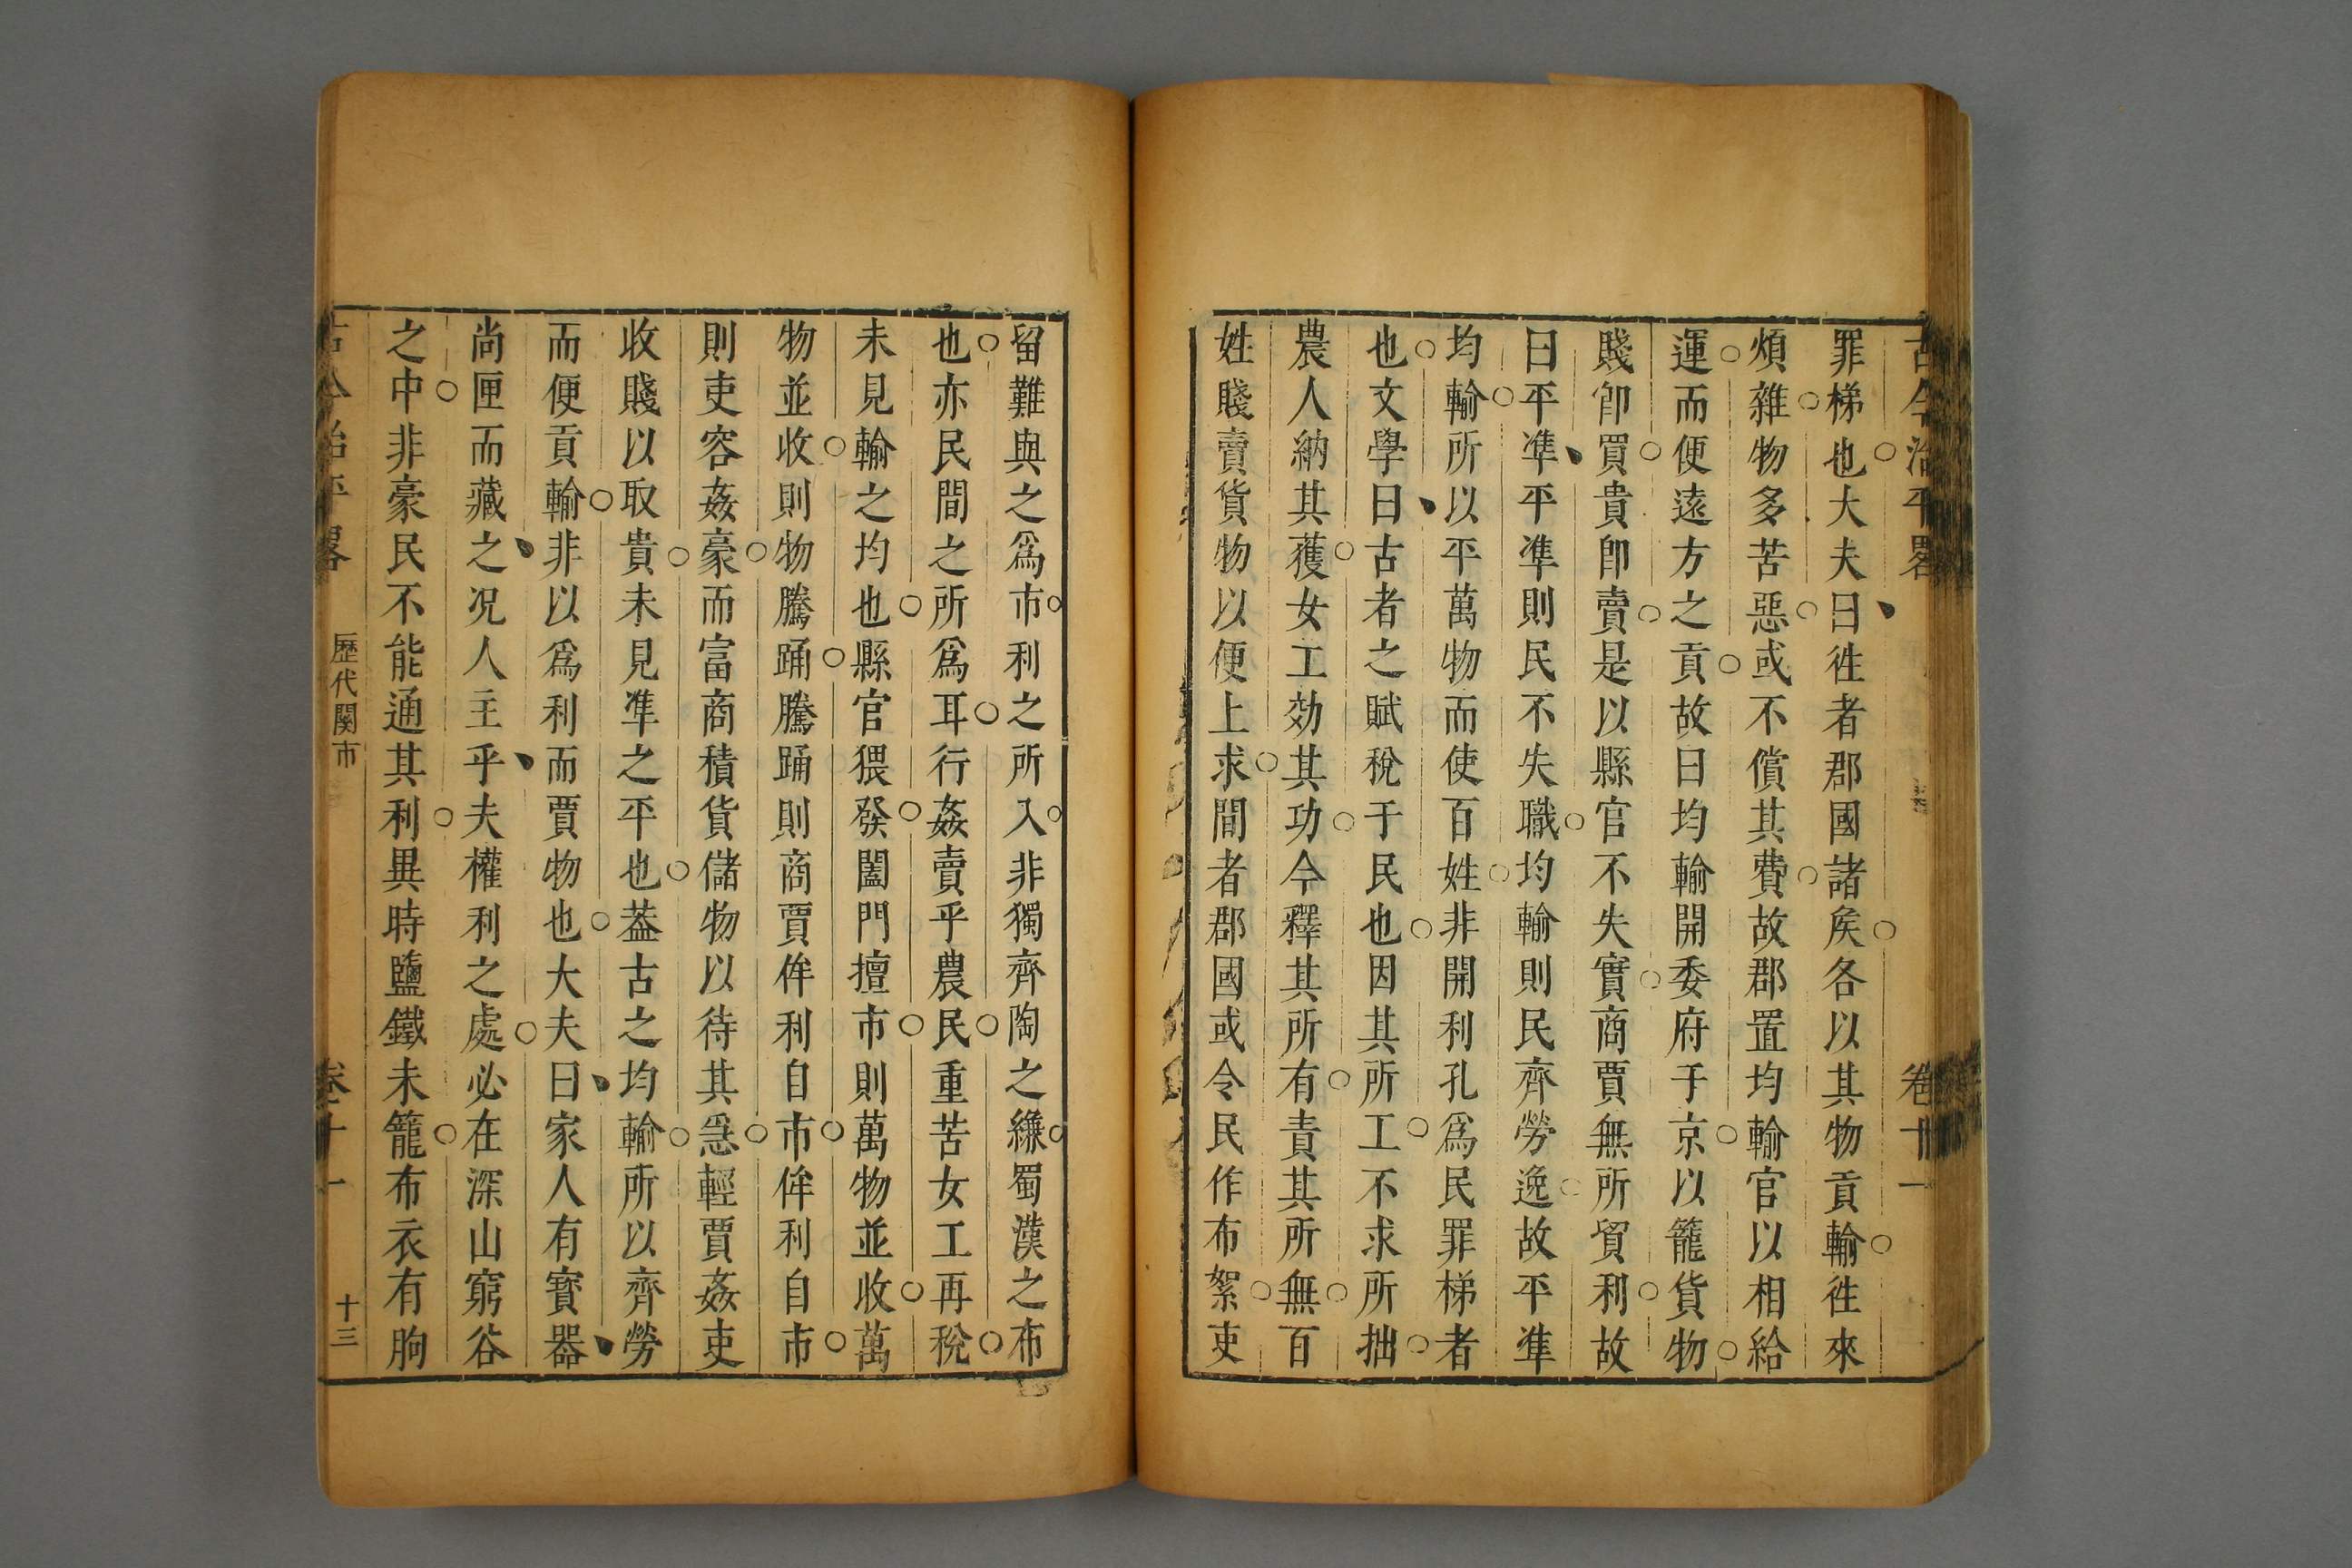 古今治平畧 卷十一
罪梯也大夫曰徃者郡國諸矦各以其物貢輸徃來
煩雜物多苦惡或不償其費故郡置均輸官以相給
運而便遠方之貢故曰均輸開委府于京以籠貨物
賤卽買貴卽賣是以縣官不失實商賈無所貿利故
曰平凖平凖則民不失職均輸則民齊勞逸故平凖
均輸所以平萬物而使百姓非開利孔爲民罪梯者
也文學曰古者之賦稅于民也因其所工不求所拙
農人納其獲女工効其功今釋其所有責其所無百
姓賤賣貨物以便上求間者郡國或令民作布絮吏
留難與之爲市利之所入非獨齊陶之縑蜀漢之布
也亦民間之所爲耳行姦賣乎農民重苦女工再稅
未見輸之均也縣官猥發闔門擅市則萬物並收萬
物並收則物騰踊騰踊則商賈侔利自市侔利自市
則吏容姦豪而富商積貨儲物以待其急輕賈姦吏
收賤以取貴未見凖之平也葢古之均輸所以齊勞
而便貢輸非以爲利而賈物也大夫曰家人有寳器
尚匣而藏之况人主乎夫權利之處必在深山窮谷
之中非豪民不能通其利異時鹽鐵未籠布衣有朐
古今治平畧 歷代關市 卷十一 十三